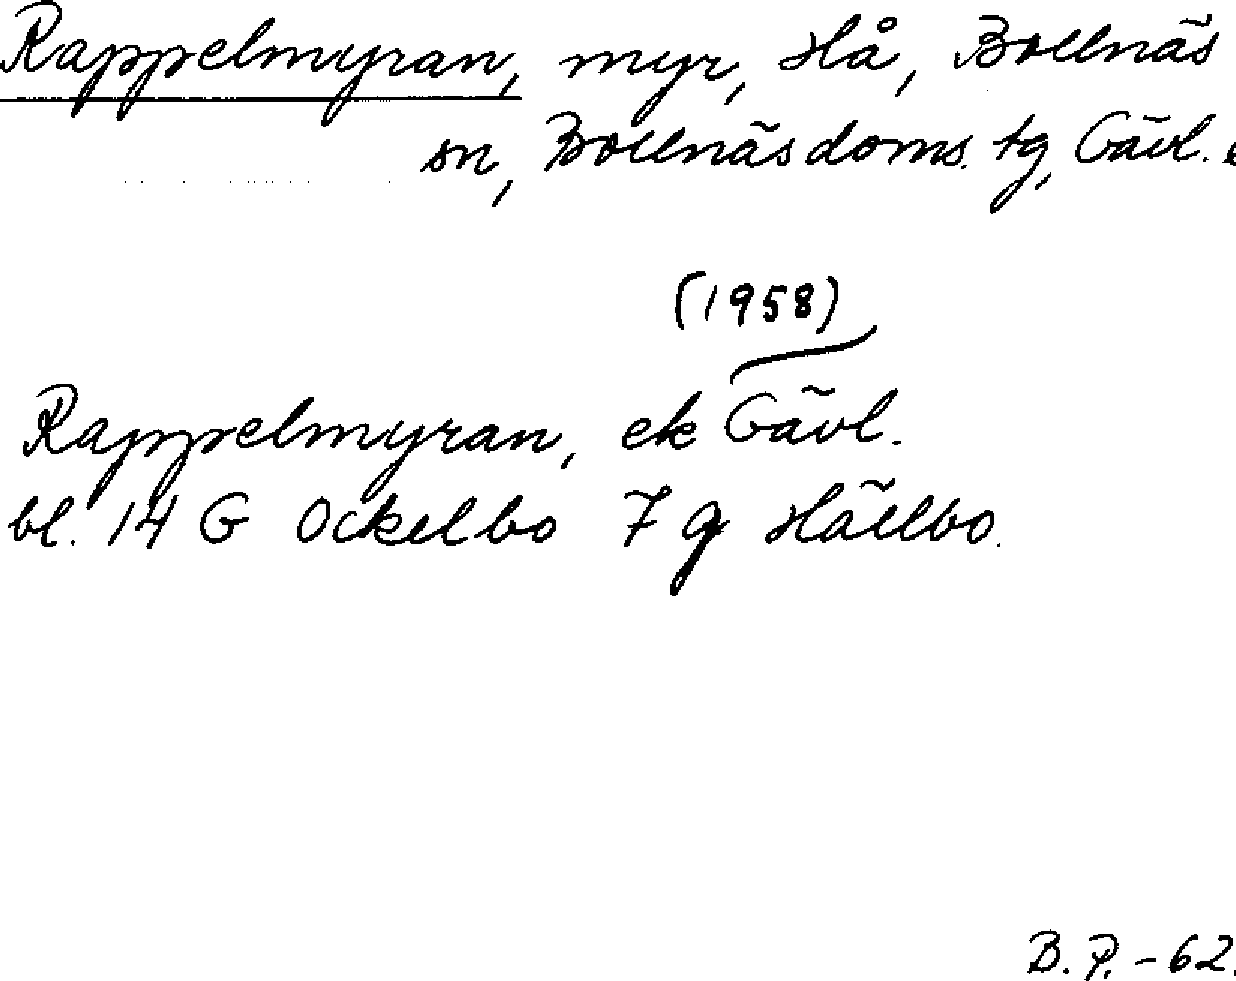 Rappelmyran, myr, Hå, Bollnäs
sn, Bollnäs doms. tg, Gävl.
(1958)
Rappelmyran, ek Gävl.
bl. 14 G Ockelbo 7 g Hällbo.
B. P. - 62.